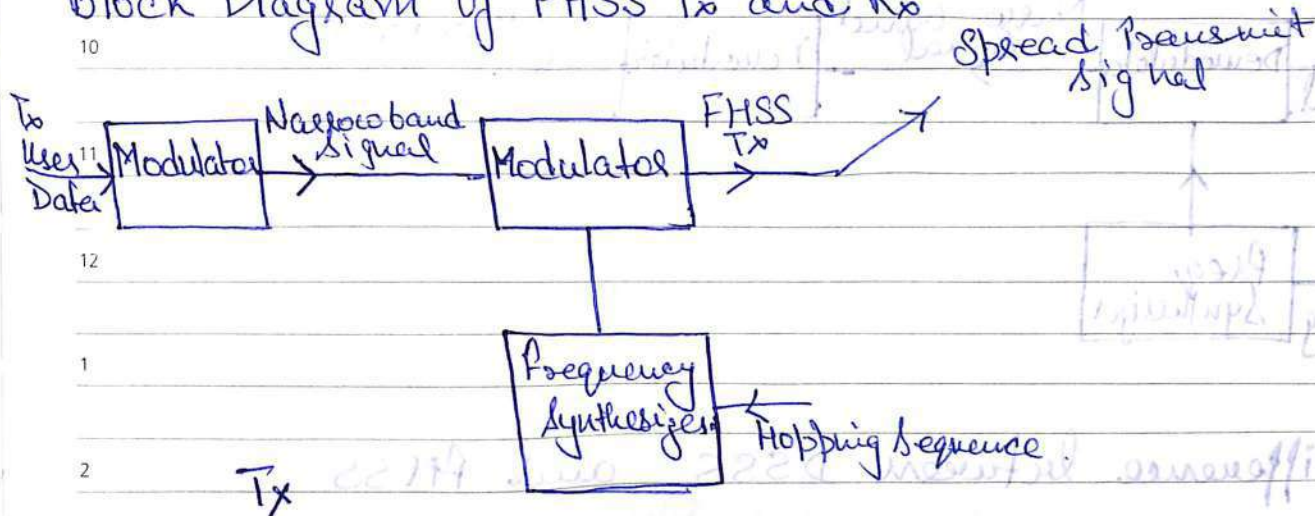 Block Diagram of FHSS Tx and Rx
10
Spread Transmit
Signal
Tx
User
Data
11
Modulator
Narrowband
Signal
Modulator
FHSS
Tx
12
1
Frequency
Synthesizer
Hopping Sequence.
2
Tx